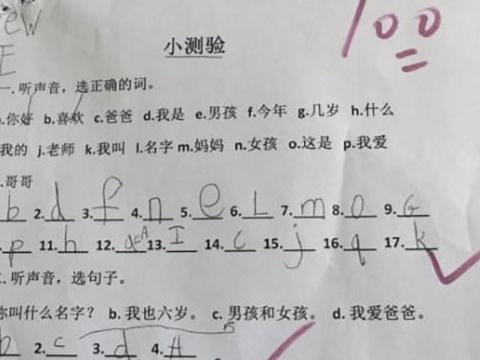 ew 100
E
小测验
一.听声音，选正确的词。
a.你好 b.喜欢 c.爸爸 d.我是 e.男孩 f.今年 g.几岁 h.什么
我的 j.老师 k.我叫 l.名字 m.妈妈 n.女孩 o.这是 p.我爱
.哥哥
b 2. d 3. f 4. n 5. e 6. L 7. m 8. o 9. G
p 11. h 12. a=A 13. I 14. c 15. j 16. q 17. k
. 听声音，选句子。
你叫什么名字？ b. 我也六岁。 c. 男孩和女孩。 d. 我爱爸爸。
b 2. c 3. d 4. A